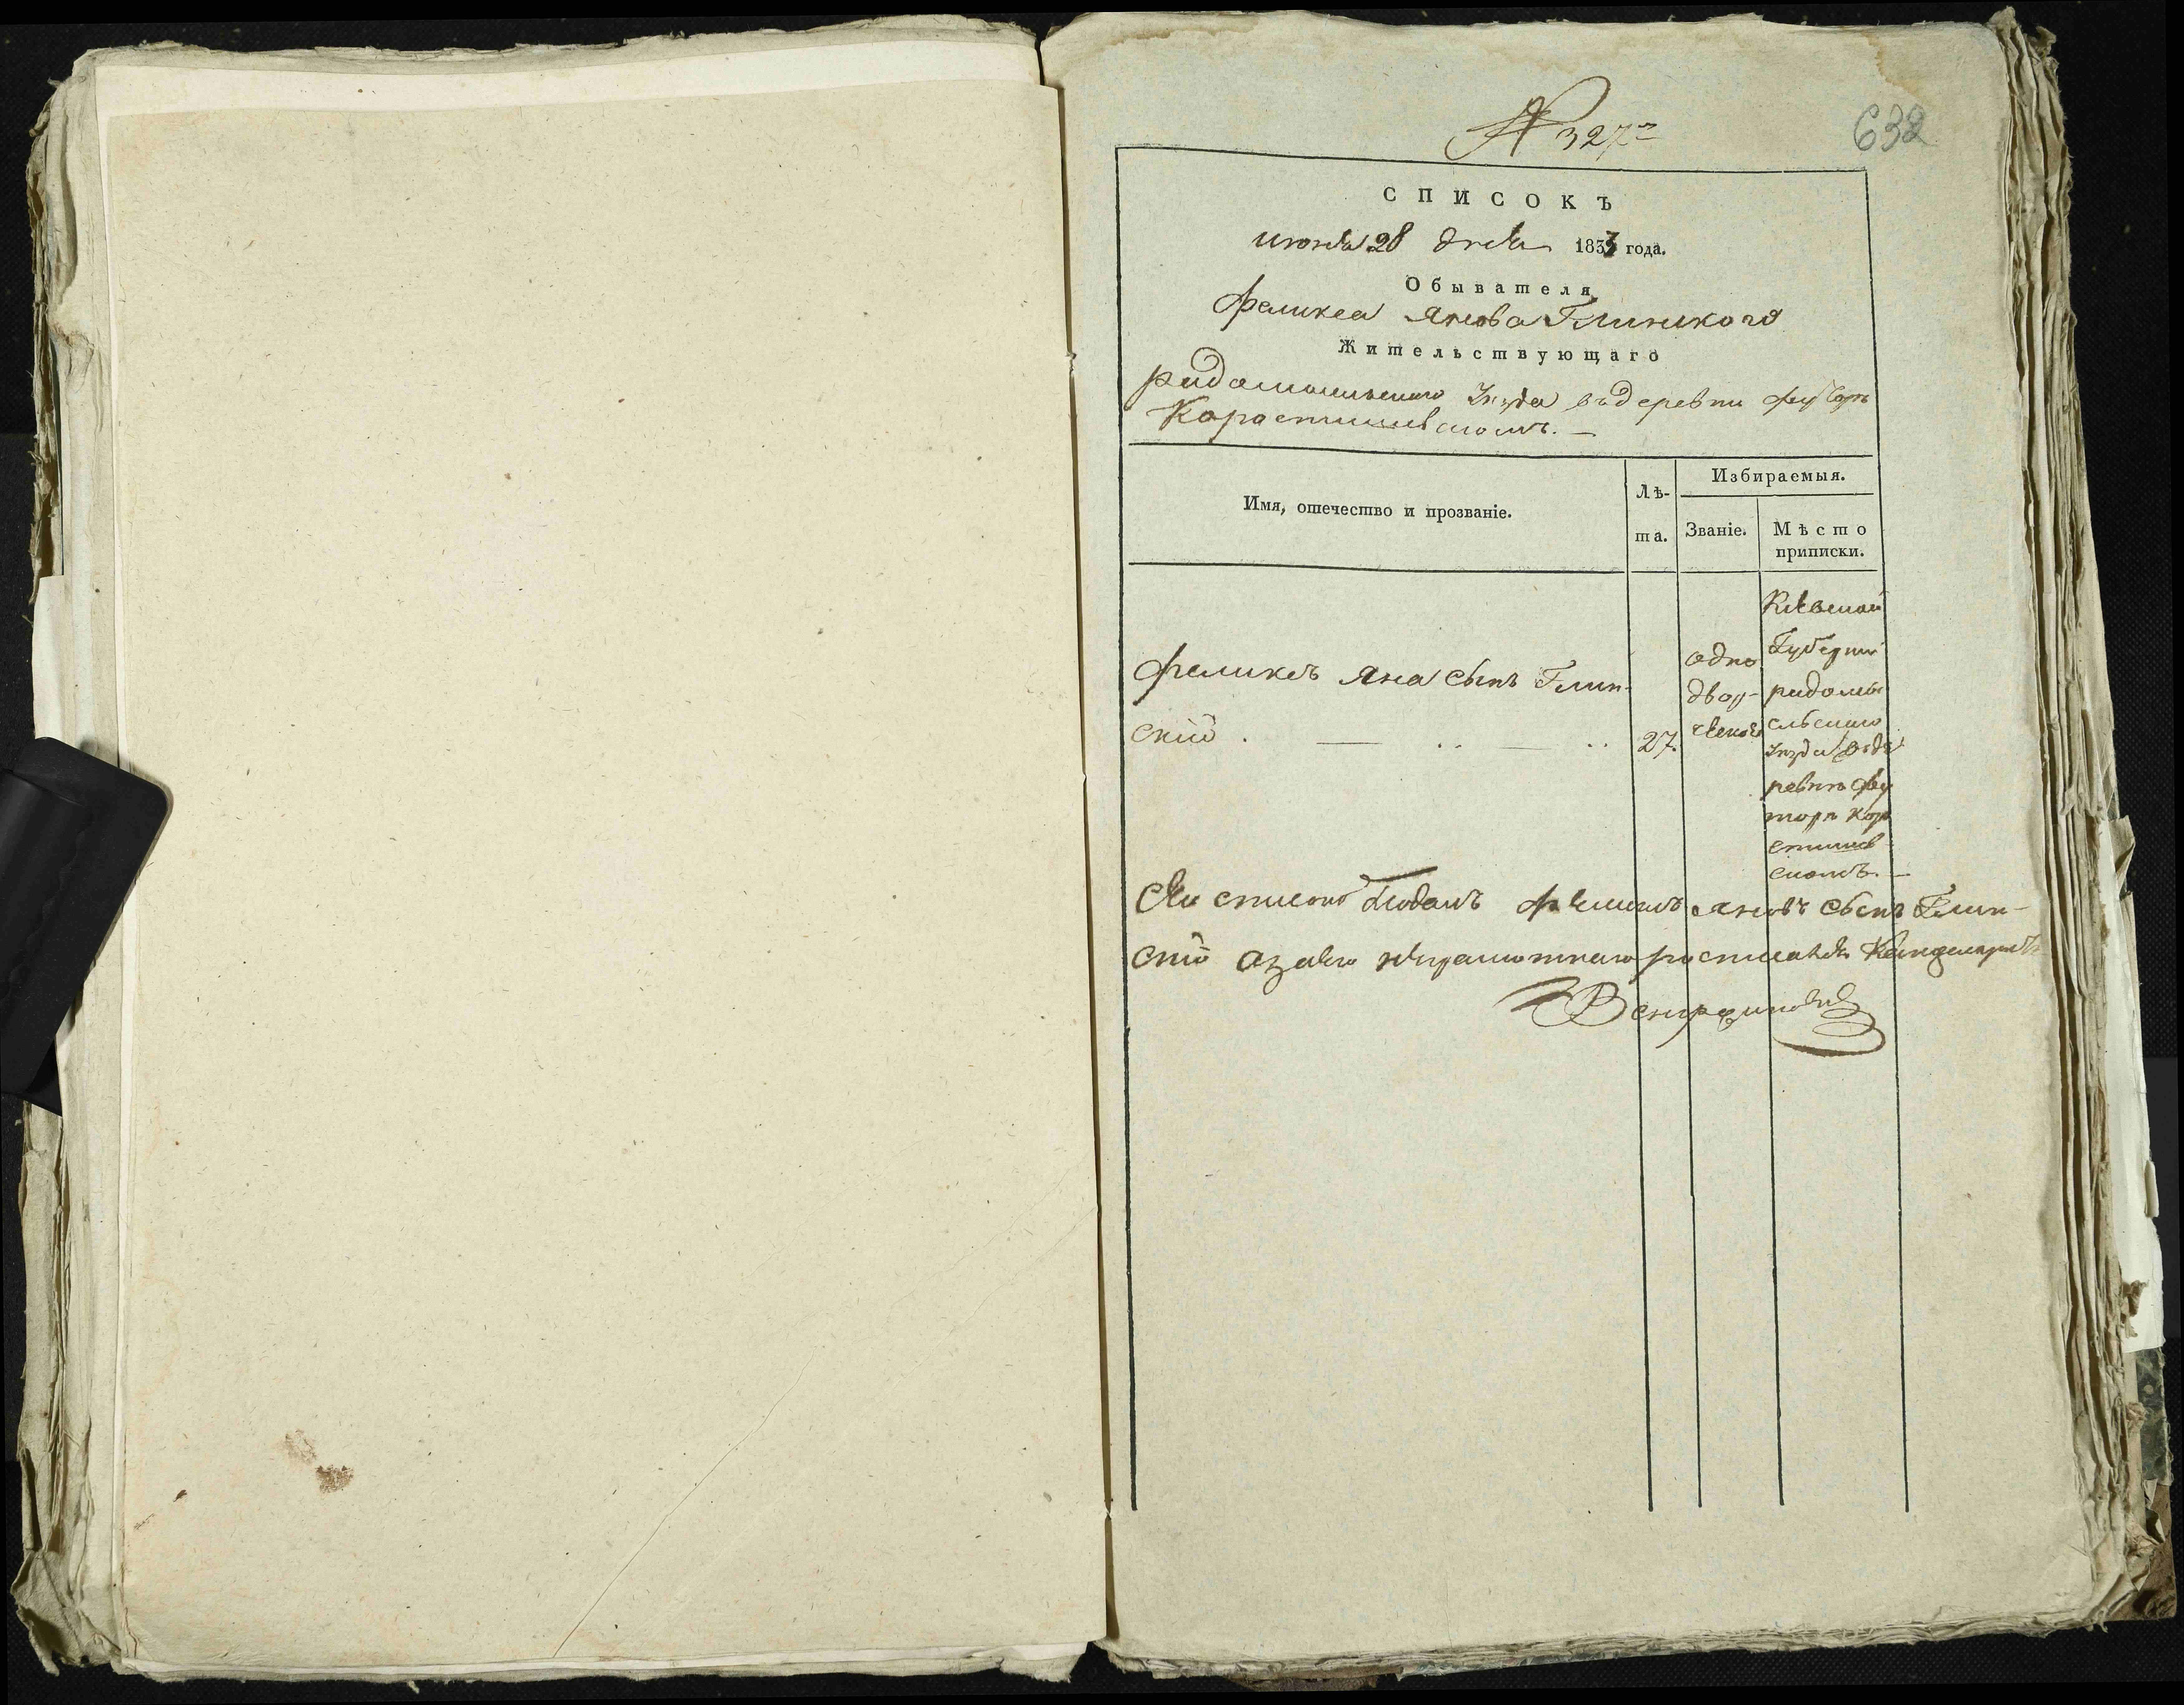 № 327
632
СПИСОКЪ
июня 28 дня 1833 года.
Обывателя
Феликса Янова Глинского
Жительствующаго
радомысльского уезда въ деревни футорѣ
Коростишевскомъ. —
Имя, отечество и прозваніе.
Лѣ-
та.
Избираемыя.
Званіе.
Мѣсто
приписки.
Феликсъ Яна сынъ Глин-
скій . — .. — .. 27.
одно
двор-
ческое
Киевской
Губерніи
радомы
сльского
уезда въ де
ревню фу
торѣ Коро
стишев
скомъ. —
Сей списокъ подалъ Феликсъ Яновъ сынъ Глин-
скій а за его неграмотнаго росписался Канцеляристъ